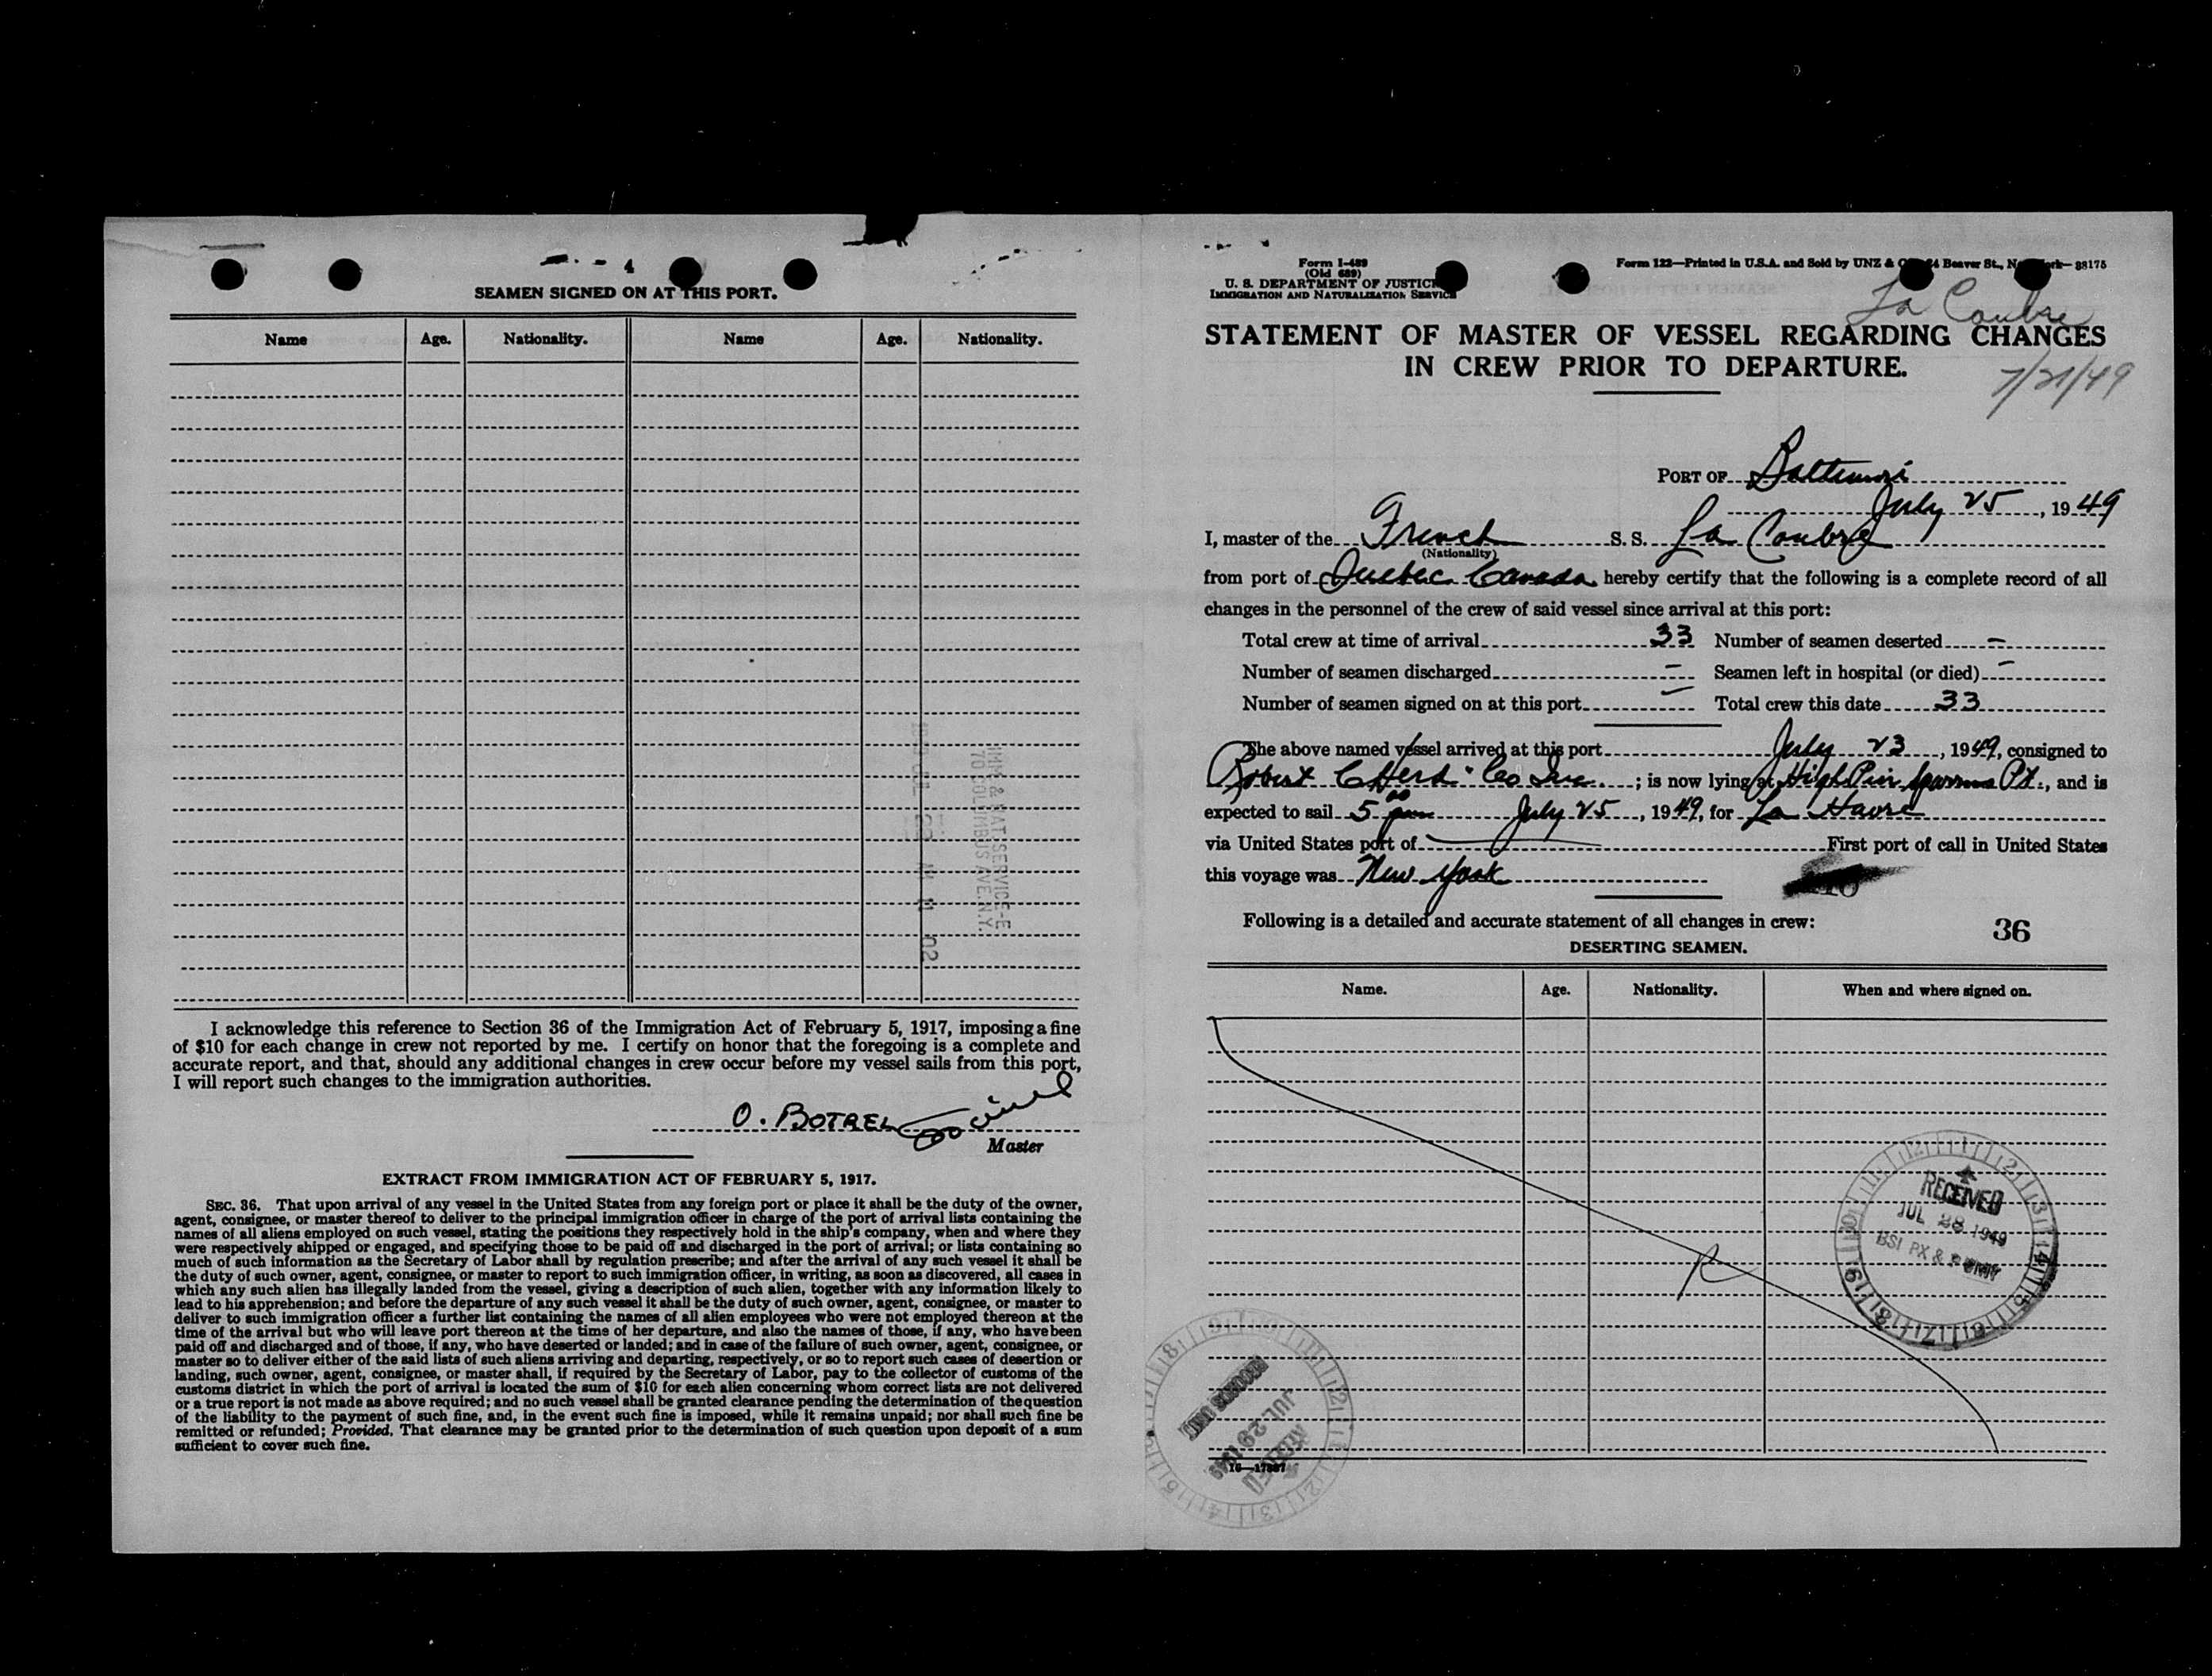 SEAMEN SIGNED ON AT THIS PORT.
Name Age. Nationality. Name Age. Nationality.
IMM & NAT SERVICE-E
70 COLUMBUS AVE. N.Y.
I acknowledge this reference to Section 36 of the Immigration Act of February 5, 1917, imposing a fine
of $10 for each change in crew not reported by me. I certify on honor that the foregoing is a complete and
accurate report, and that, should any additional changes in crew occur before my vessel sails from this port,
I will report such changes to the immigration authorities.
O. BOTREL
Master
EXTRACT FROM IMMIGRATION ACT OF FEBRUARY 5, 1917.
SEC. 36. That upon arrival of any vessel in the United States from any foreign port or place it shall be the duty of the owner,
agent, consignee, or master thereof to deliver to the principal immigration officer in charge of the port of arrival lists containing the
names of all aliens employed on such vessel, stating the positions they respectively hold in the ship's company, when and where they
were respectively shipped or engaged, and specifying those to be paid off and discharged in the port of arrival; or lists containing so
much of such information as the Secretary of Labor shall by regulation prescribe; and after the arrival of any such vessel it shall be
the duty of such owner, agent, consignee, or master to report to such immigration officer, in writing, as soon as discovered, all cases in
which any such alien has illegally landed from the vessel, giving a description of such alien, together with any information likely to
lead to his apprehension; and before the departure of any such vessel it shall be the duty of such owner, agent, consignee, or master to
deliver to such immigration officer a further list containing the names of all alien employees who were not employed thereon at the
time of the arrival but who will leave port thereon at the time of her departure, and also the names of those, if any, who have been
paid off and discharged and of those, if any, who have deserted or landed; and in case of the failure of such owner, agent, consignee, or
master so to deliver either of the said lists of such aliens arriving and departing, respectively, or so to report such cases of desertion or
landing, such owner, agent, consignee, or master shall, if required by the Secretary of Labor, pay to the collector of customs of the
customs district in which the port of arrival is located the sum of $10 for each alien concerning whom correct lists are not delivered
or a true report is not made as above required; and no such vessel shall be granted clearance pending the determination of the question
of the liability to the payment of such fine, and, in the event such fine is imposed, while it remains unpaid; nor shall such fine be
remitted or refunded; Provided, That clearance may be granted prior to the determination of such question upon deposit of a sum
sufficient to cover such fine.
Form I-489
(Old 689)
U. S. DEPARTMENT OF JUSTICE
IMMIGRATION AND NATURALIZATION SERVICE
Form 122—Printed in U.S.A. and Sold by UNZ & Beaver St., 38175
La Coubre
STATEMENT OF MASTER OF VESSEL REGARDING CHANGES
IN CREW PRIOR TO DEPARTURE.
7/21/49
PORT OF Baltimore
July 25, 1949
I, master of the French S. S. La Coubre
(Nationality)
from port of Quebec Canada hereby certify that the following is a complete record of all
changes in the personnel of the crew of said vessel since arrival at this port:
Total crew at time of arrival 33 Number of seamen deserted -
Number of seamen discharged - Seamen left in hospital (or died) -
Number of seamen signed on at this port - Total crew this date 33
The above named vessel arrived at this port July 23, 1949, consigned to
Robert C Herd & Co Inc. ; is now lying at High Pier Sparrows Pt., and is
expected to sail 5 00 pm July 25, 1949, for La Havre
via United States port of First port of call in United States
this voyage was New York
Following is a detailed and accurate statement of all changes in crew:
36
DESERTING SEAMEN.
Name. Age. Nationality. When and where signed on.
RECEIVED
JUL 28 1949
BSI PX &
JUL 29 1949
RECEIVED